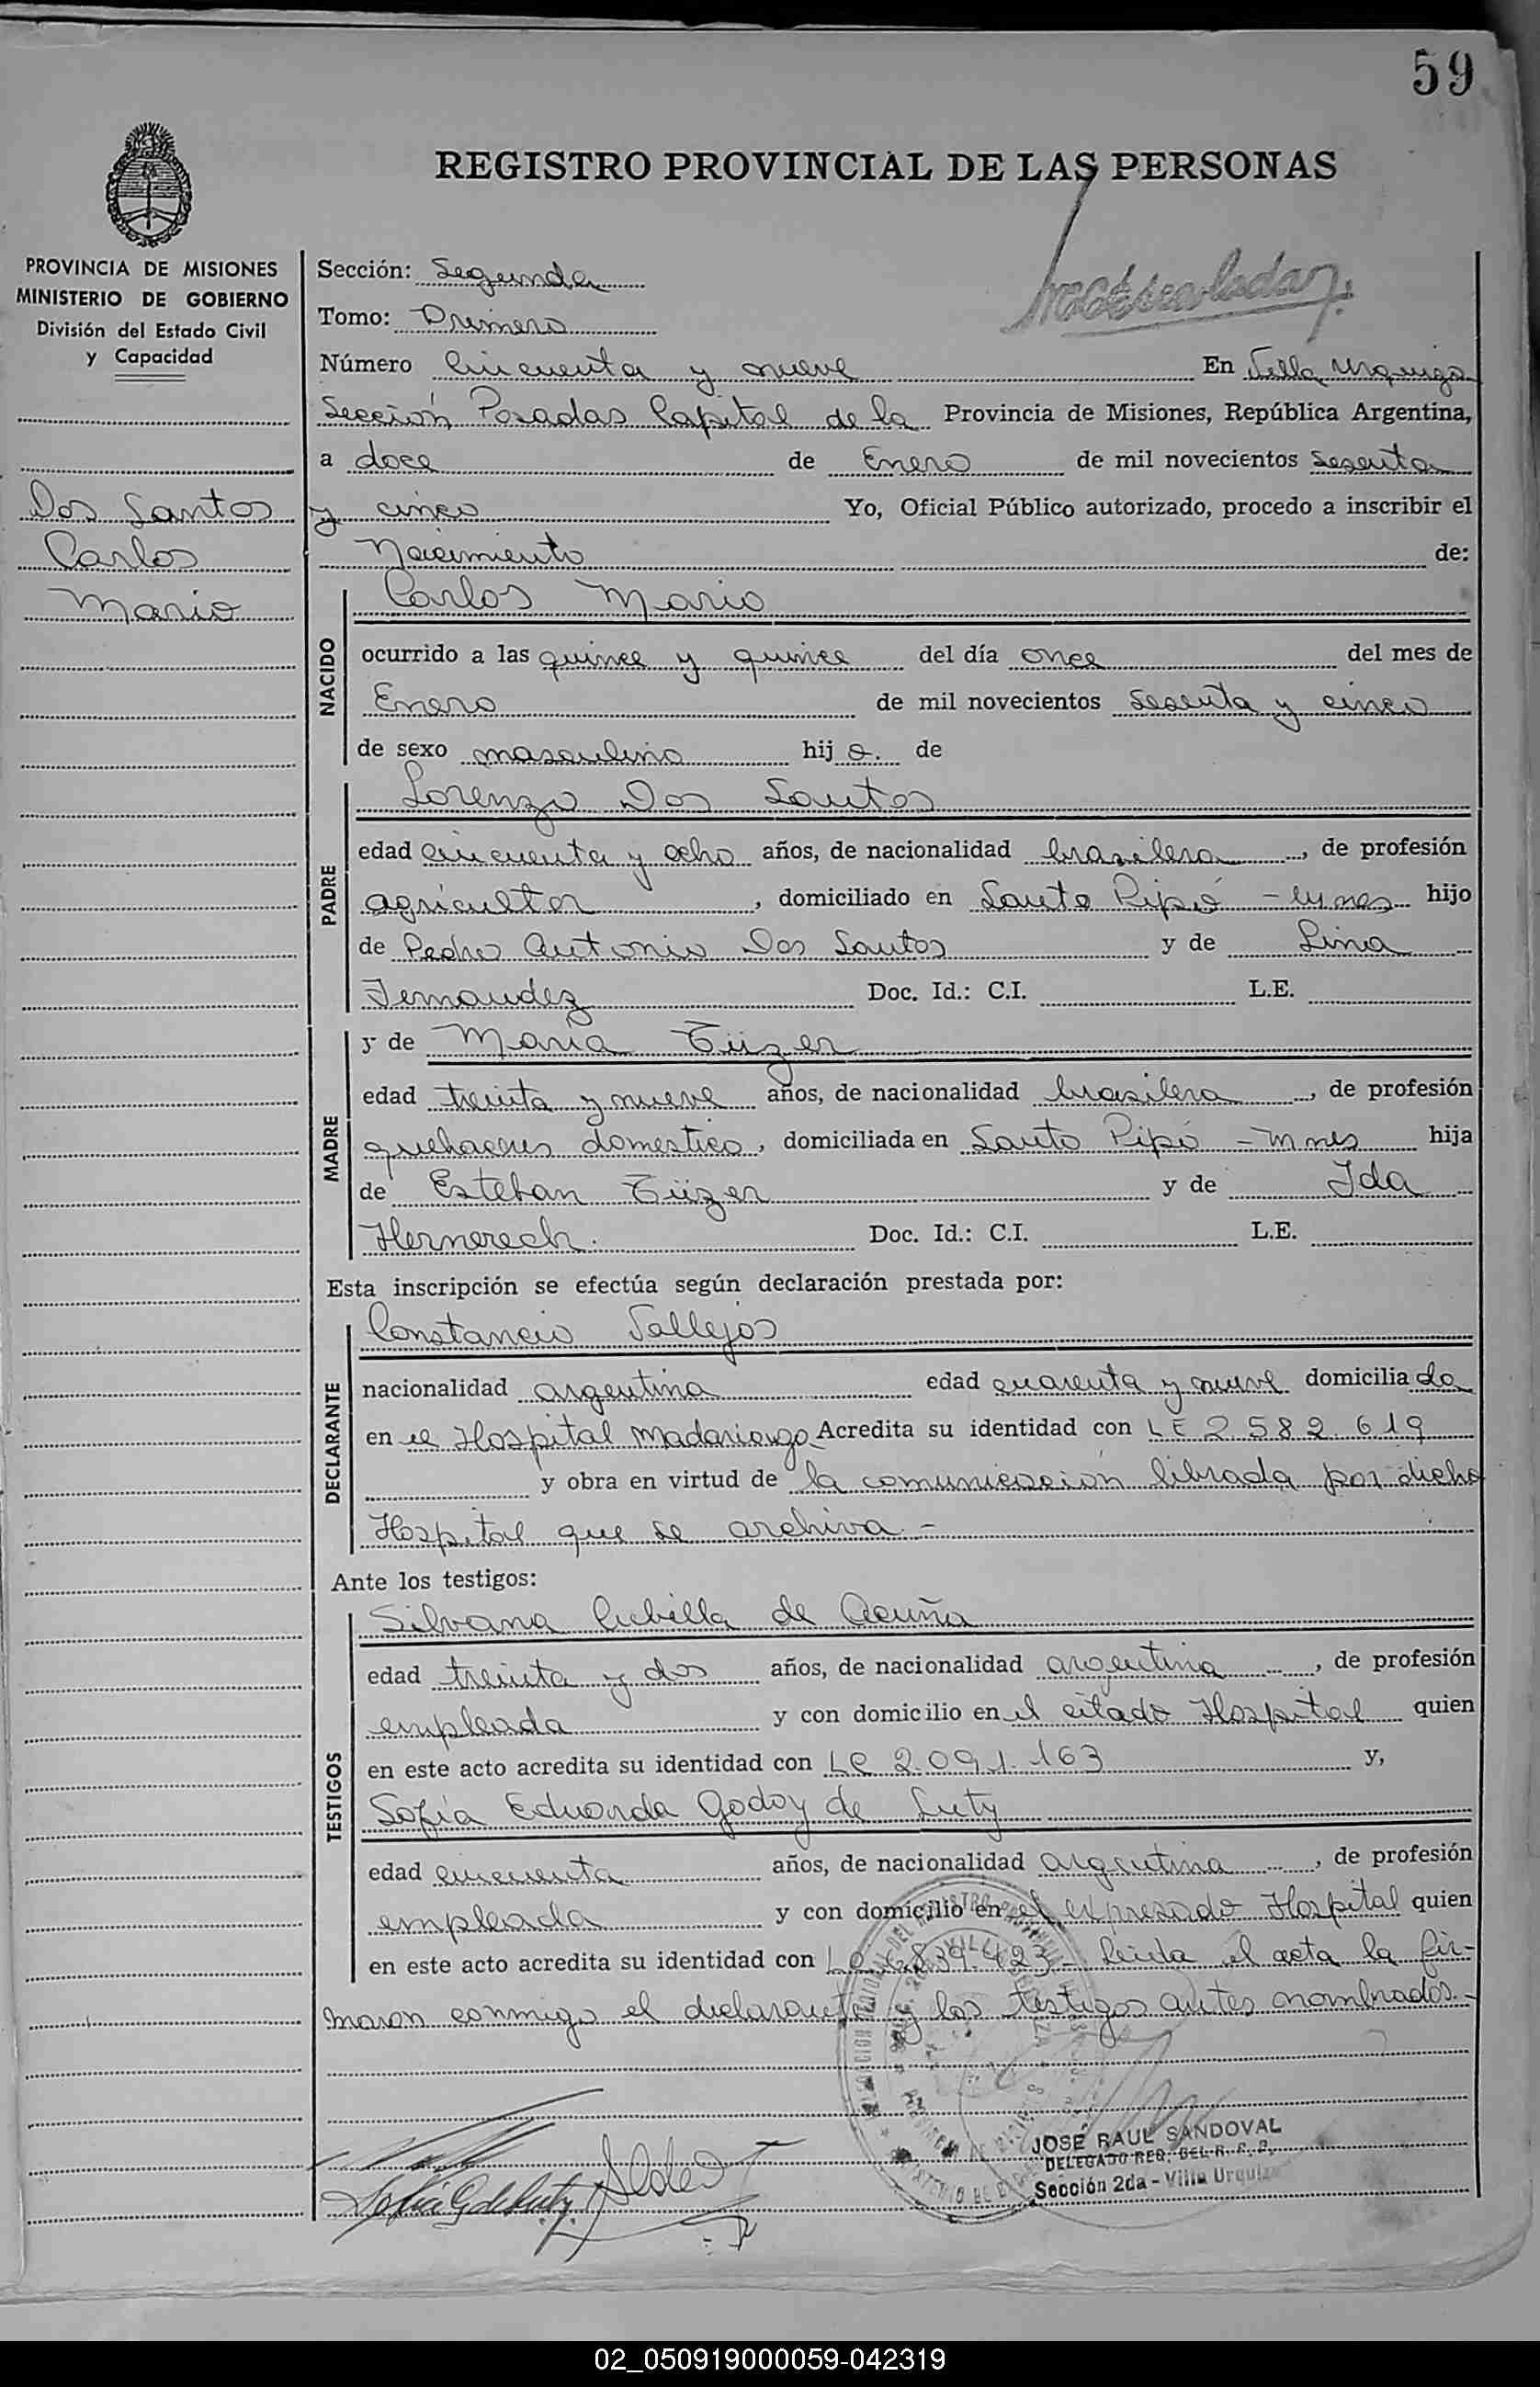 59
REGISTRO PROVINCIAL DE LAS PERSONAS
PROVINCIA DE MISIONES
MINISTERIO DE GOBIERNO
División del Estado Civil
y Capacidad
Dos Santos
Carlos
Mario
Sección: Segunda
Tomo: Primero
Número Cincuenta y nueve En Villa Urquiza
Sección Posadas Capital de la Provincia de Misiones, República Argentina,
a doce de Enero de mil novecientos sesenta
y cinco Yo, Oficial Público autorizado, procedo a inscribir el
Nacimiento de:
NACIDO
Carlos Mario
ocurrido a las quince y quince del día once del mes de
Enero de mil novecientos sesenta y cinco
de sexo masculino hijo. de
PADRE
Lorenzo Dos Santos
edad cincuenta y ocho años, de nacionalidad brasilera, de profesión
agricultor, domiciliado en Santo Pipó - hijo
de Pedro Antonio Dos Santos y de Lina
Fernandez Doc. Id.: C.I. L.E.
MADRE
y de Maria Tüzer
edad treinta y nueve años, de nacionalidad brasilera, de profesión
quehaceres domestico, domiciliada en Santo Pipó - Mnes hija
de Esteban Tüzer y de Ida
Hernerech. Doc. Id.: C.I. L.E.
Esta inscripción se efectúa según declaración prestada por:
DECLARANTE
Constancio Vallejos
nacionalidad argentina edad cuarenta y nueve domiciliado
en el Hospital Madariaga Acredita su identidad con LE 2.582.619
y obra en virtud de la comunicación librada por dicho
Hospital que se archiva -
Ante los testigos:
TESTIGOS
Silvana Cubilla de Acuña
edad treinta y dos años, de nacionalidad argentina, de profesión
empleada y con domicilio en el citado Hospital quien
en este acto acredita su identidad con LC 2.091.163 y,
Sofía Eduarda Godoy de Luty
edad cincuenta años, de nacionalidad argentina, de profesión
empleada y con domicilio en el expresado Hospital quien
en este acto acredita su identidad con Leída el acta la fir-
maron conmigo el declarante y los testigos antes nombrados.-
JOSE RAUL SANDOVAL
DELEGADO REG. DEL R. P. P.
Sección 2da - Villa Urquiza
02_050919000059-042319